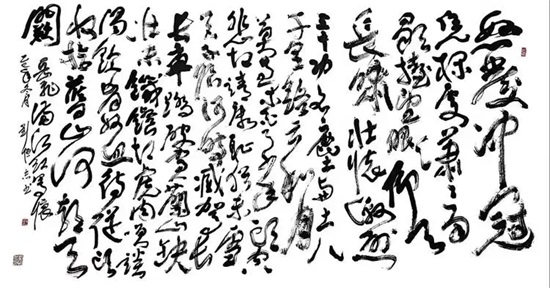 怒发冲冠
凭栏处潇潇雨
歇抬望眼仰天
长啸壮怀激烈
三十功名尘与土八
千里路云和月
莫等闲白了少年头空
悲切靖康耻犹未雪
臣子恨何时灭驾长
车踏破贺兰山缺
壮志饥餐胡虏肉笑谈
渴饮匈奴血待从头
收拾旧山河朝天
阙
岳飞满江红写怀